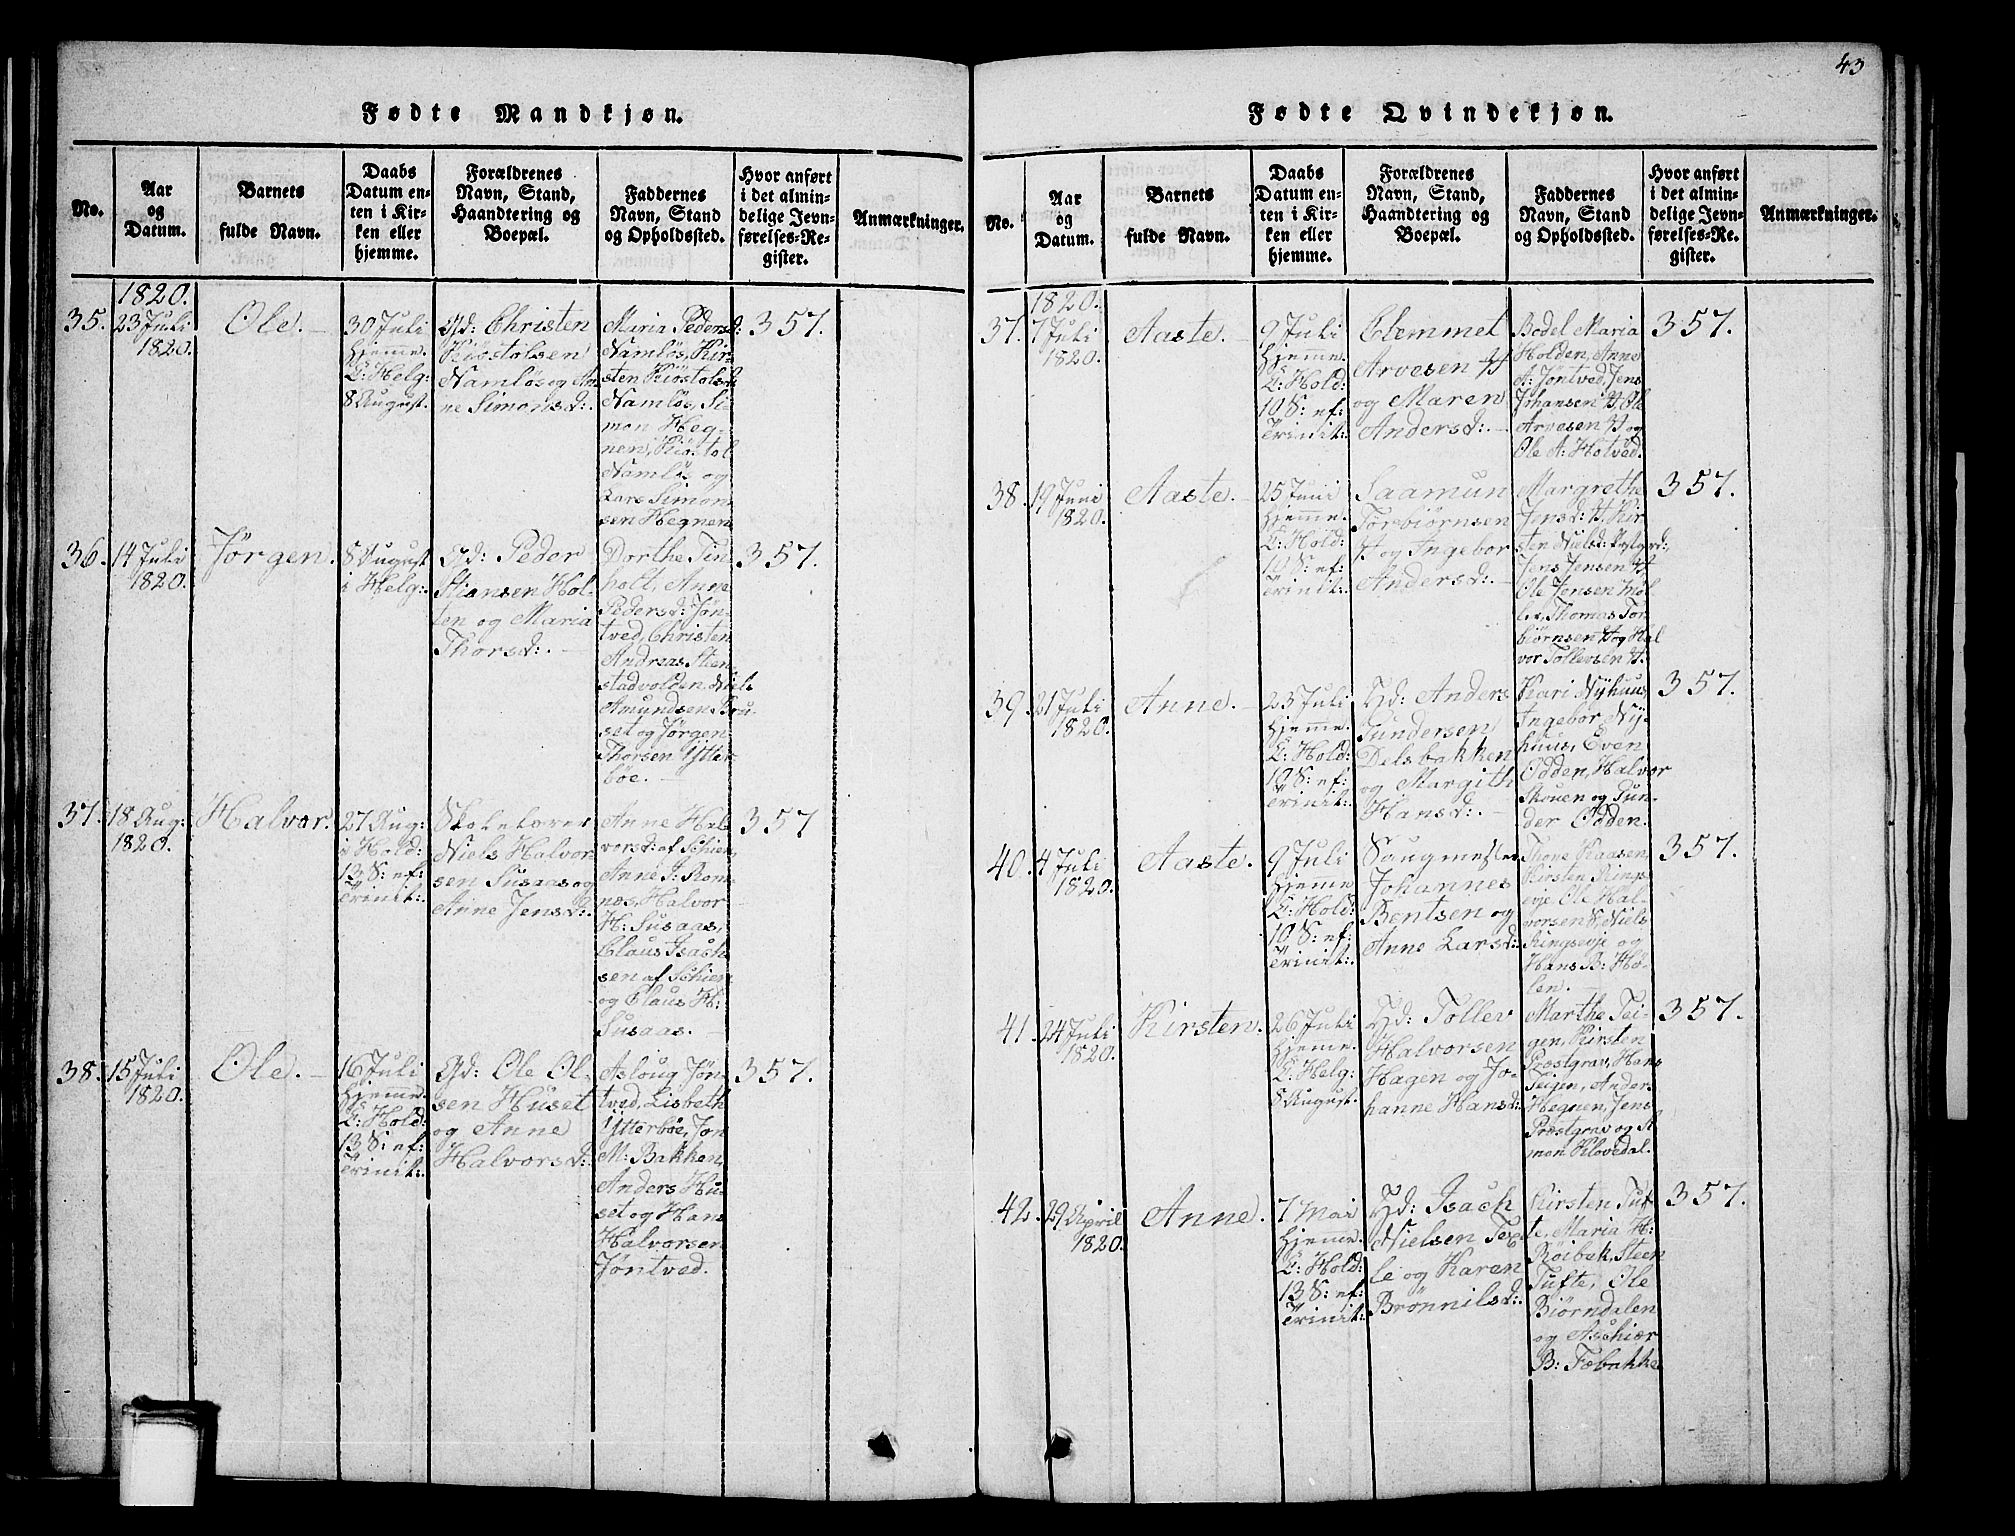 43
Fødte Mandkjøn.
No.
Aar
og
Datum.
Barnets
fulde Navn.
Daabs
Datum en-
ten i Kir-
ken eller
hjemme.
Forældrenes
Navn, Stand,
Haandtering og
Boepæl.
Faddernes
Navn, Stand
og Opholdssted.
Hvor anført
i det almin-
delige Jevn-
førelses-Re-
gister.
Anmærkninger.
1820.
35.
23 Juli
1820.
Ole.
30 Juli
hjemme.
C: Helg:
8 August.
Gd: Christen
Kiöstolsen
Namlös og An
ne Simonsd:
Maria Pedersd:
Namlös, Kir-
sten Kiöstolsd:
Namlös, Si-
mon Heg-
nen, Kiöstol
Namlös og
Lars Simon
sen Hegnen
357.
36.
14 Juli
1820.
Jørgen.
8 August
i Helg:
Gd: Peder
Stiansen Hol-
ten og Maria
Thorsd:
Dorthe Tin-
holt, Anne
Pedersd: Jøn-
tved, Christen
Andreas. Sten
stadvolden, Niels
Amundsen Bru-
set og Jørgen
Thorsen Ytter
böe.
357.
37.
18 Aug:
1820.
Halvor.
27 Aug:
i Hold:
13 S: ef:
Trinit:
Skolelærer
Niels Halvor-
sen Susaas og
Anne Jensd:
Anne Hal
vorsd: af Schien
Anne J: Rom-
næs, Halvor
H: Susaas,
Claus Isach
sen af Schien
og Claus H:
Susaas.
357
38.
15 Juli
1820.
Ole.
16 Juli
hjemme.
C: Hold:
13 S: ef:
Trinit:
Gd: Ole Ol-
sen Huset
og Anne
Halvorsd:
Aslaug Jøn-
tved, Lisbeth
Ytterböe, Jon
M: Bakken,
Anders Hu-
set og Hans
Halvorsen
Jøntved.
357.
Fødte Qvindekjøn.
No.
Aar
og
Datum.
Barnets
fulde Navn.
Daabs
Datum en-
ten i Kir-
ken eller
hjemme.
Forældrenes
Navn, Stand,
Haandtering og
Boepæl.
Faddernes
Navn, Stand
og Opholdssted.
Hvor anført
i det almin-
delige Jevn-
førelses-Re-
gister.
Anmærkninger.
1820.
37.
7 Juli
1820.
Aaste.
9 Juli
hjemme.
C: Hold:
10 S: ef:
Trinit:
Clemmet
Arvesen H
og Maren
Andersd:
Bodel Maria
Holden, Anne
A: Jöntved, Jens
Johansen H, Ole
Arvesen H og
Ole A: Hotved.
357.
38.
19 Juni
1820.
Aaste.
25 Juni
hjemme.
C: Hold:
10 S: ef:
Trinit:
Saamun
Torbiørnsen
H og Ingebor
Andersd:
Margrethe
Jensd: H, Kir
sten Nielsd:
Jens Jensen H
Ole Jensen Møl
ler, Thomas Tor
biørnsen H og Hal
vor Tollevsen H.
357.
39.
21 Juli
1820.
Anne.
23 Juli
hjemme.
C: Hold:
10 S: ef:
Trinit:
Hd: Anders
Gundersen
Delsbakken
og Margith
Hansd:
Kari Nyhuus
Ingebor Ny-
huus, Even
Odden, Halvor
Skouen og Gun-
der Odden.
357.
40.
4 Juli
1820.
Aaste.
9 Juli
hjemme
C: Hold:
10 S: ef:
Trinit:
Saugmester
Johannes
Bentsen og
Anne Larsd:
Thone Kaasen,
Kirsten Rings
evje Ole Hal-
vorsen S, Niels
Ringsevje og
Hans B: Ho-
len.
357.
41.
24 Juli
1820.
Kirsten.
26 Juli
hjemme.
C: Helg:
8 August.
Hd: Tollev
Halvorsen
Hagen og Jo-
hanne Hansd:
Marthe Tei-
gen, Kirsten
Præstgrav, Hans
Teigen, Anders
Hegnen, Jens
Præstgrav og Si
mon Klovedal.
357.
42.
29 April
1820.
Anne.
7 Mai
hjemme.
C: Hold:
13 S: ef:
Trinit:
Hd: Isach
Nielsen Tex
le og Karen
Brønnilsd:
Kirsten Tuf
te, Maria H:
Röibek, Steen
Tufte, Ole
Biörndalen
og Aschier
B: Fæbakke
357.